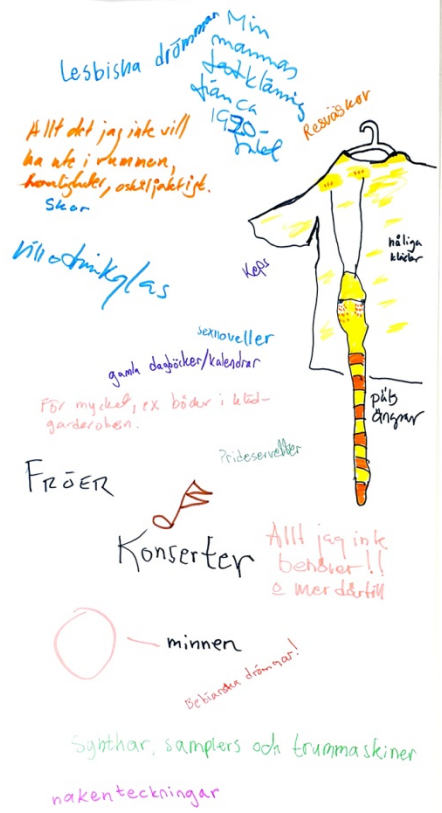 Lesbiska drömmar
Min
mammas
festklänning
från ca
1920-
talet
Resväskor
Allt det jag inte vill
ha ute i rummen,
hemligheter, oskiljaktigt.
Skor
håliga
kläder
Keps
vill o drinkglas
sexnoveller
gamla dagböcker/kalendrar
För mycket, ex böcker i kläd-
garderoben.
päls
ängrar
Prideservetter
FRÖER
Konserter
Allt jag ink
behöver!!
o mer därtill
minnen
drömmar!
Synthar, samplers och trummaskiner
nakenteckningar